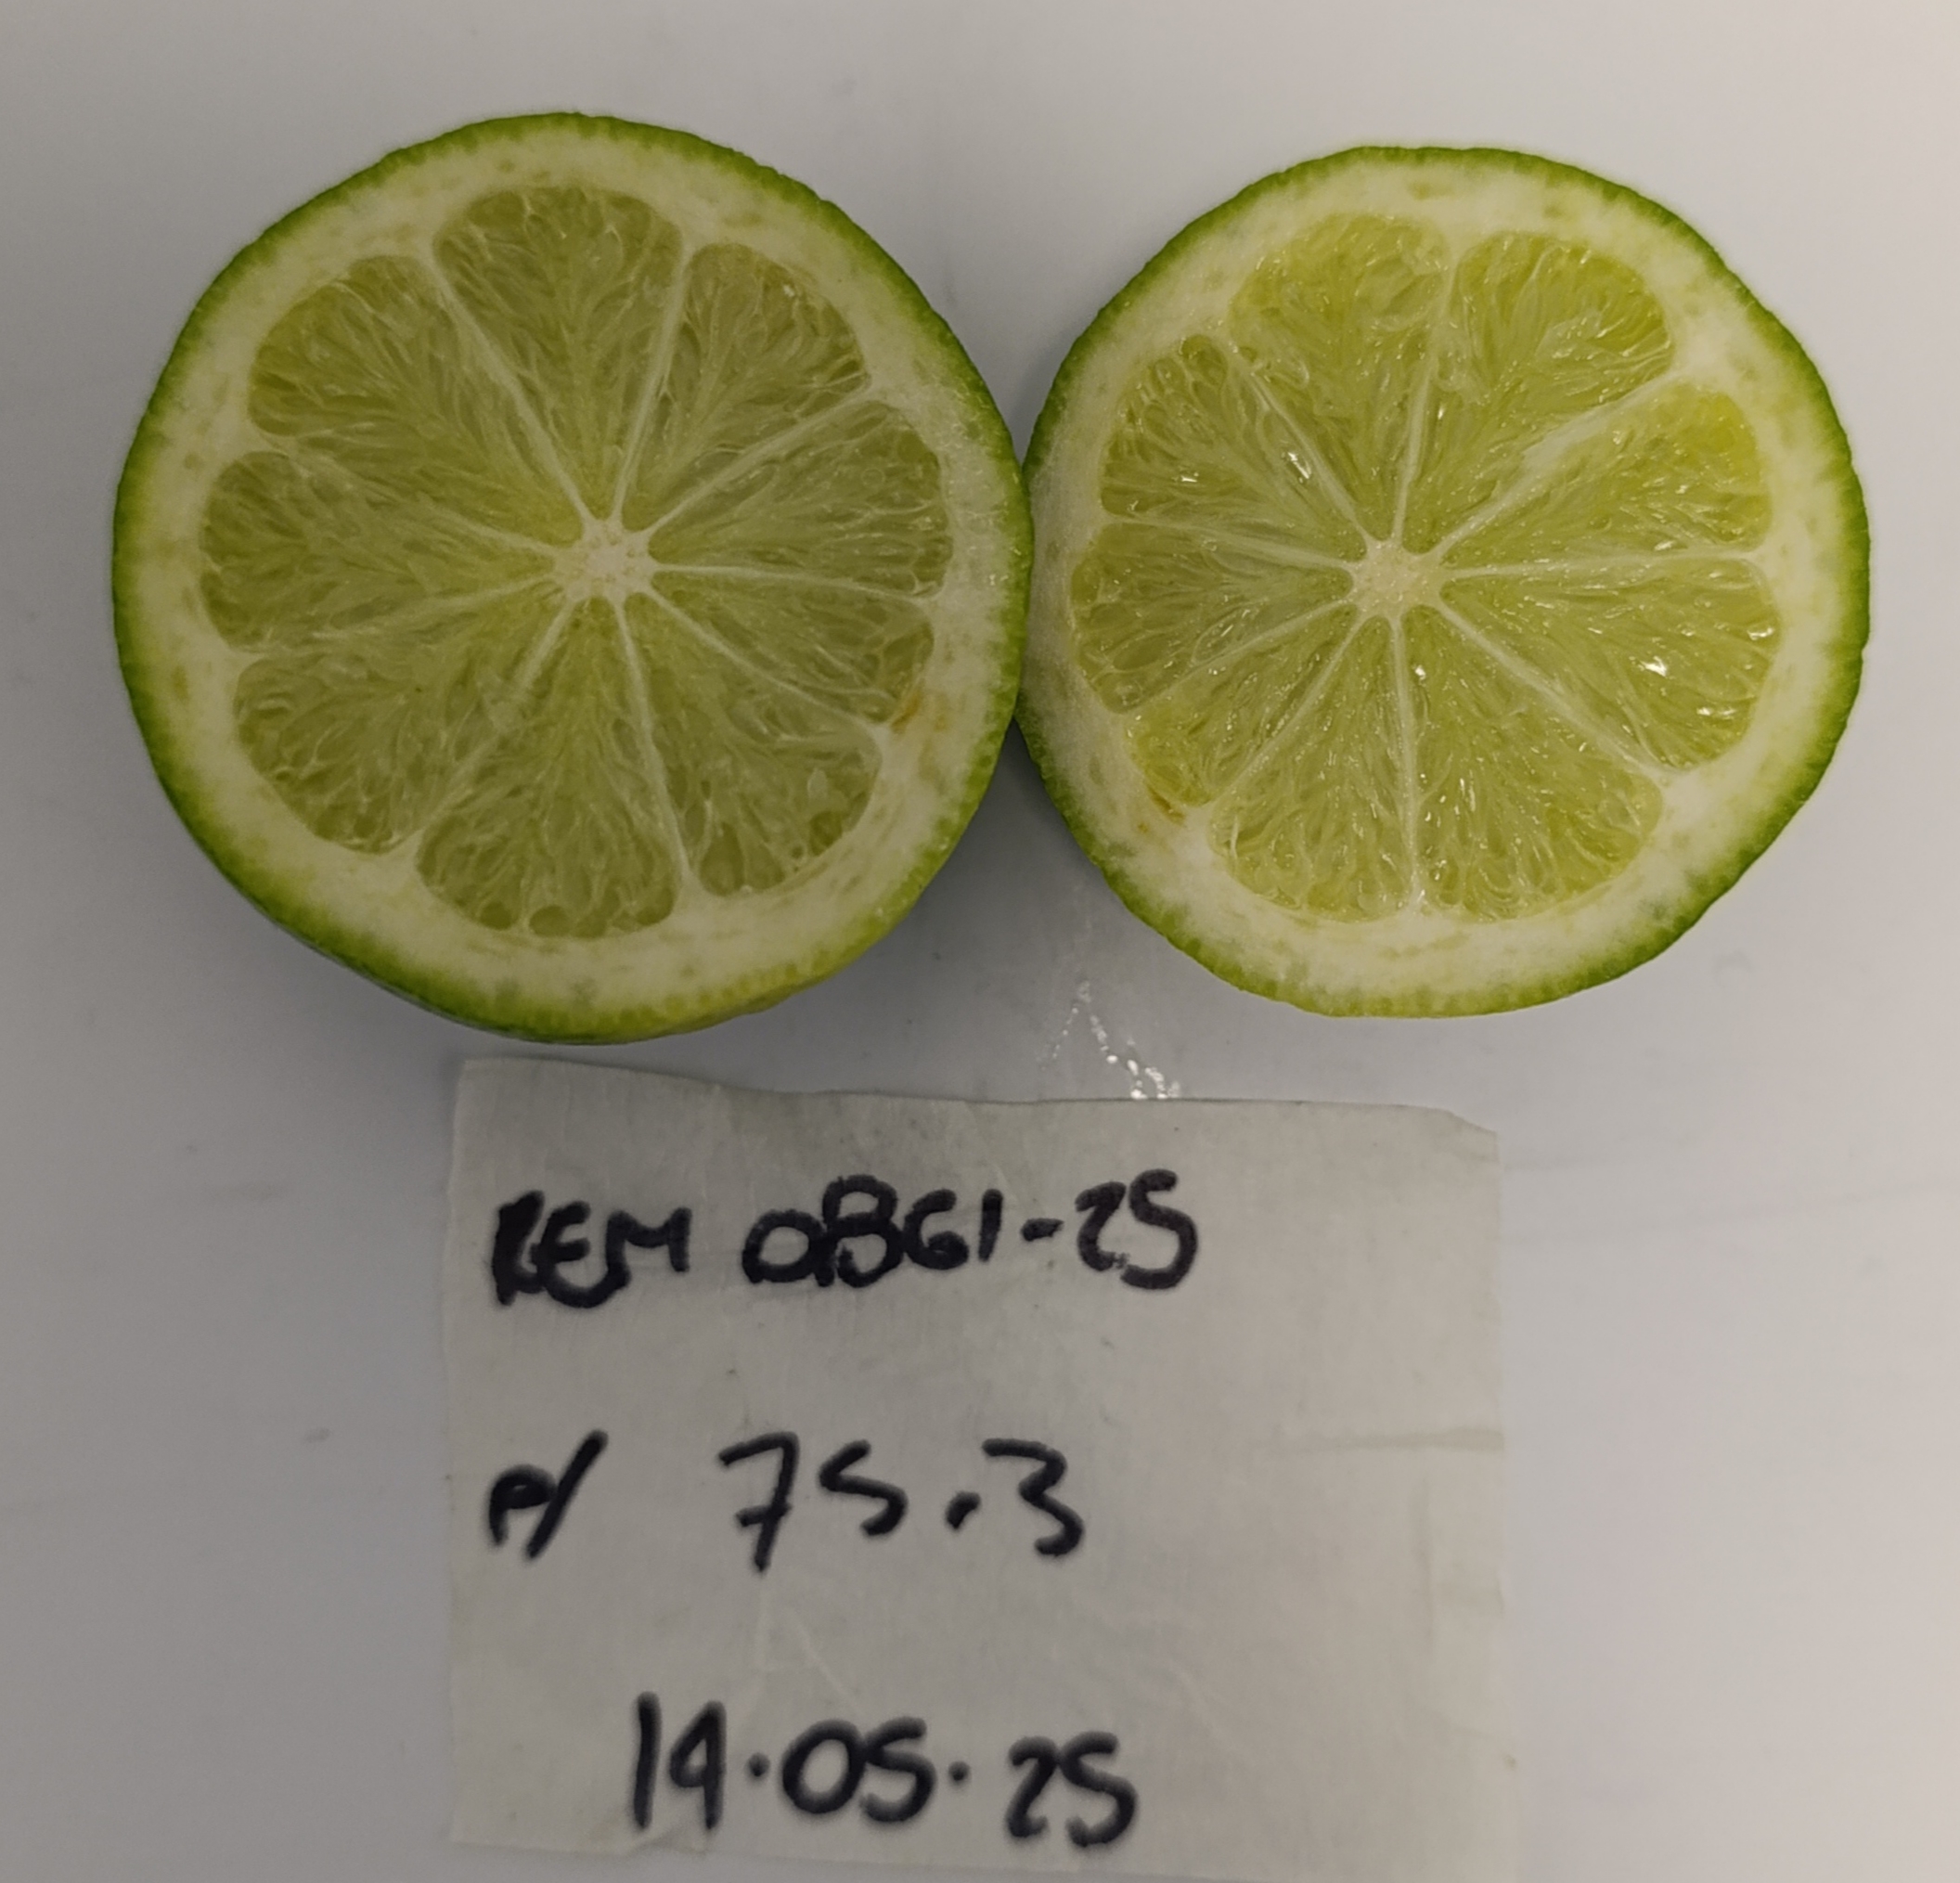 REM 0861-25
P/ 75.3
14.05.25